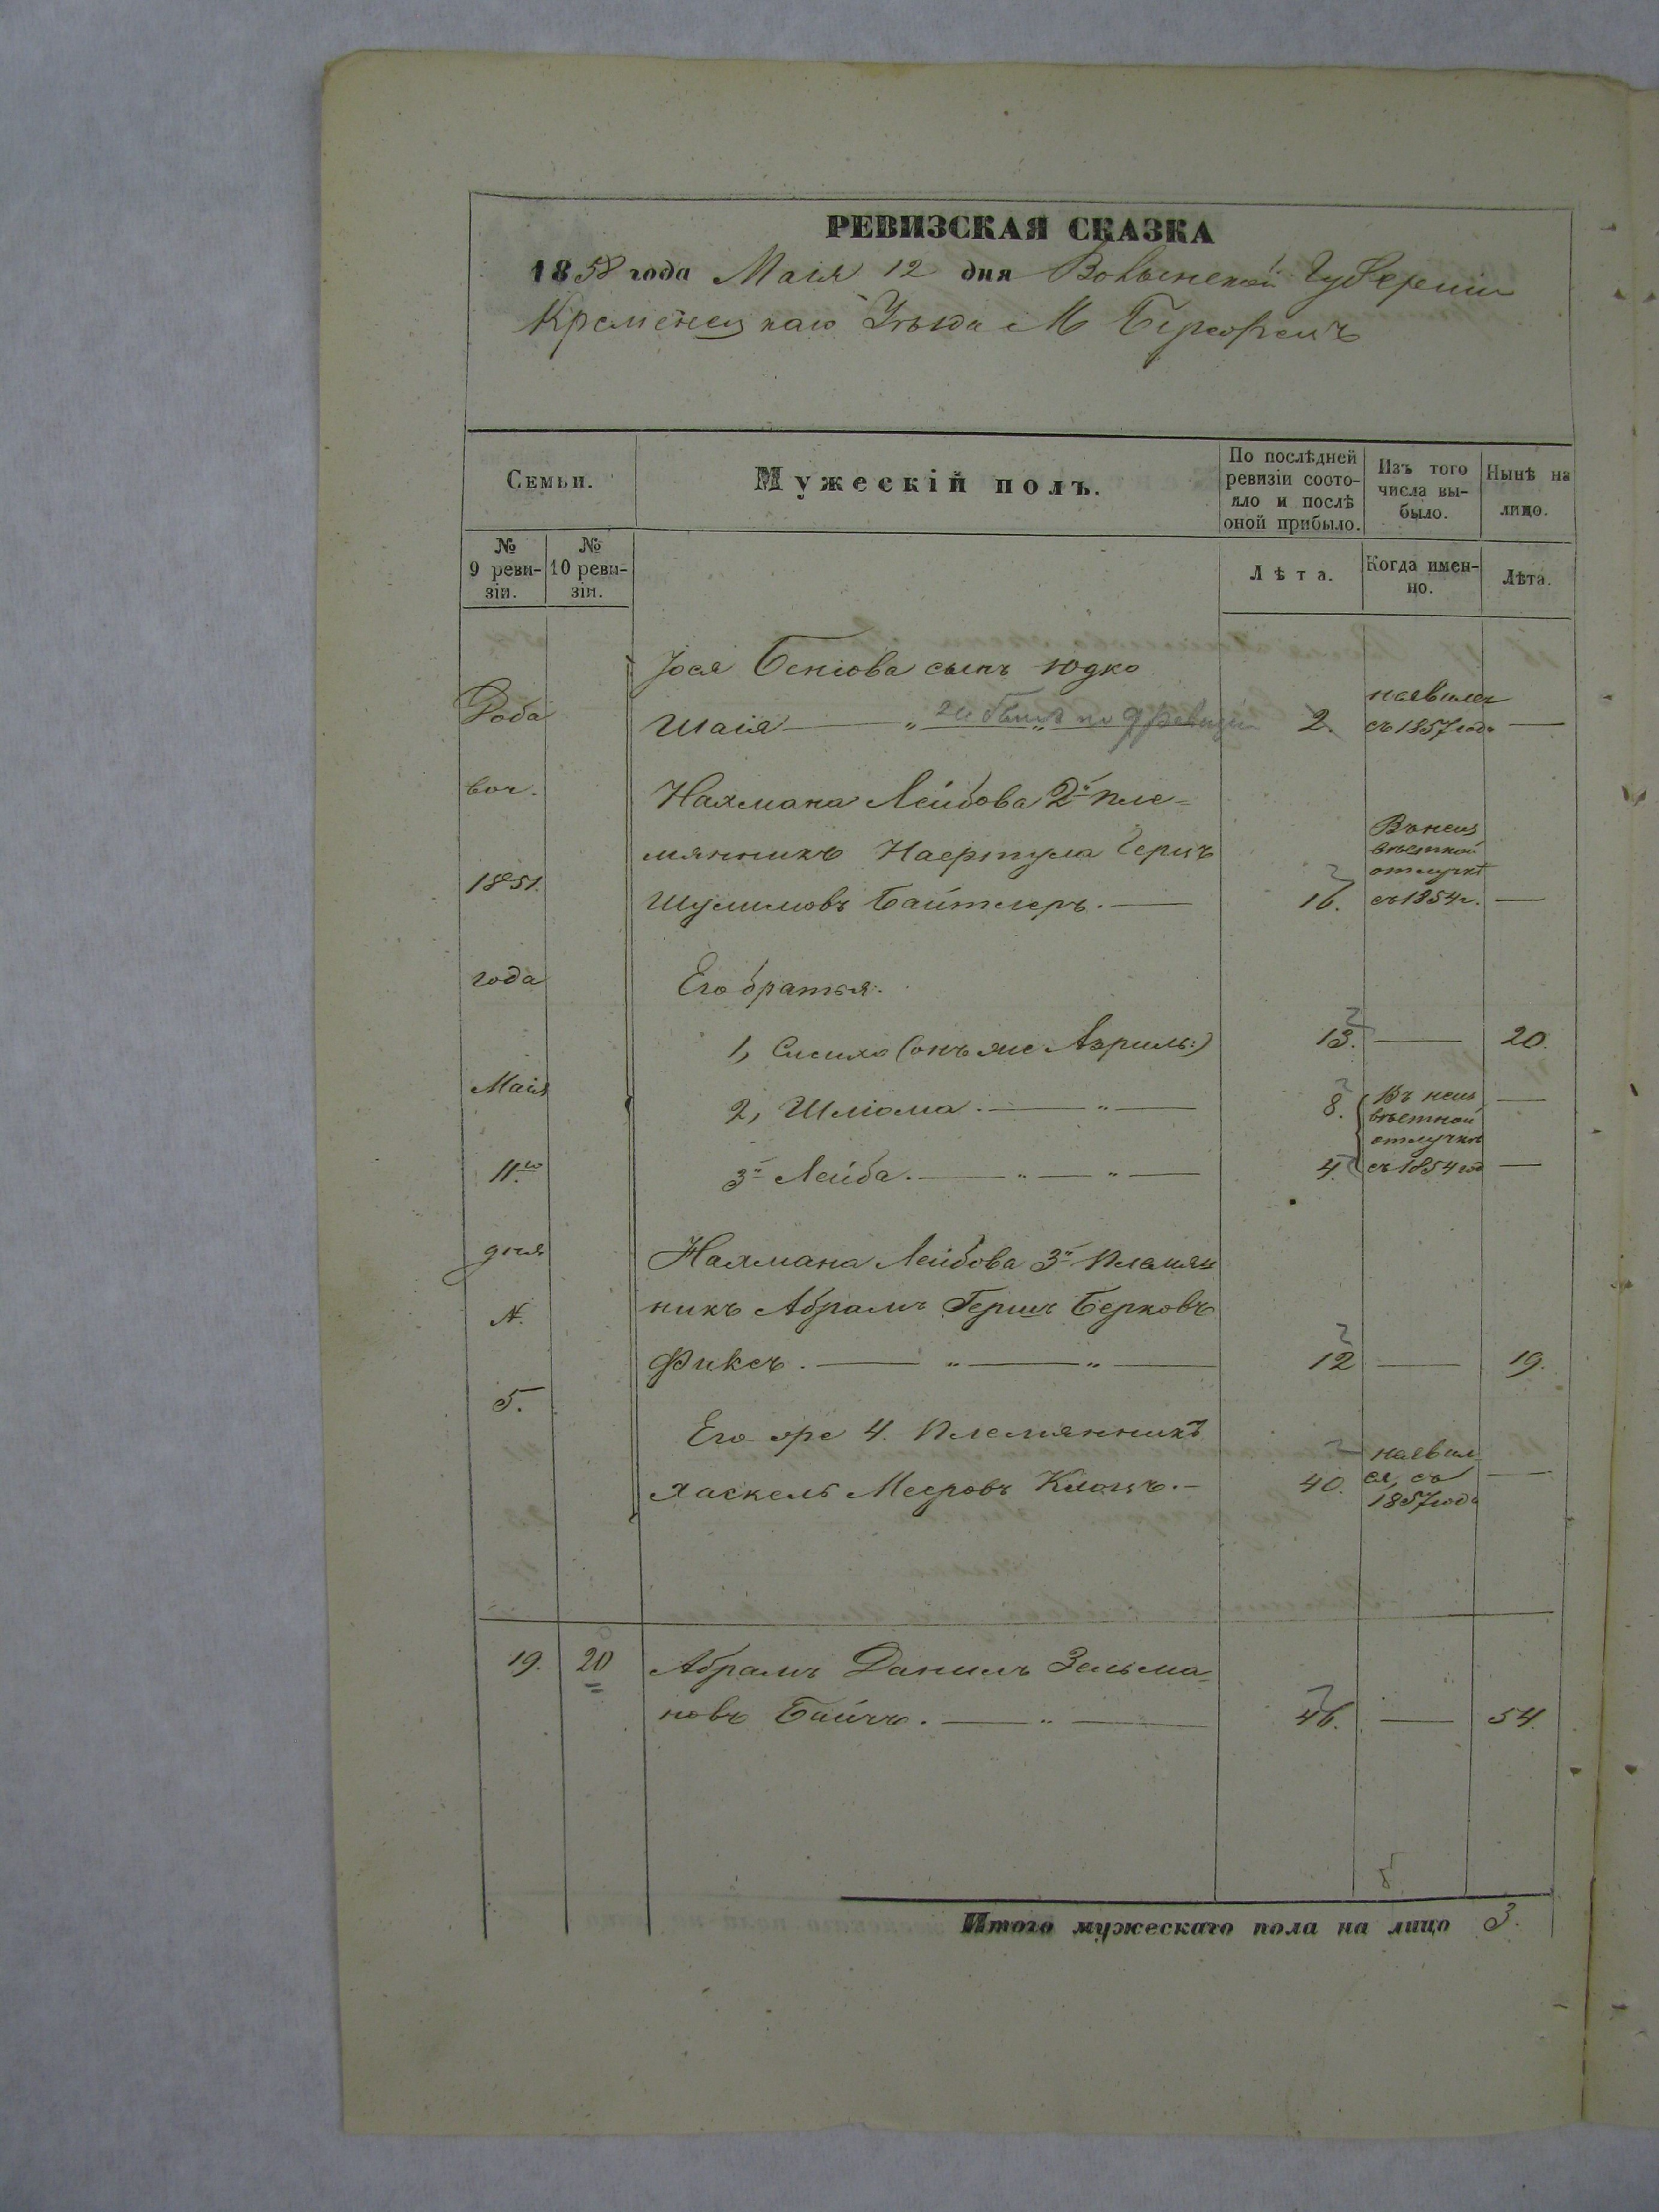 РЕВИЗСКАЯ СКАЗКА
1858 года Маія 12 дня Волынской Губерніи
Кременецкаго Уѣзда М
Семьи.
Мужескій полъ.
По послѣдней ревизіи состояло и послѣ оной прибыло.
Изъ того числа выбыло.
Нынѣ на лицо.
№ 9 ревизіи.
№ 10 ревизіи.
Лѣта.
Когда именно.
Лѣта.
Іося Беніова сынъ Юдко
Шаія — " — по 9 ревизіи 2. неявился съ 1857 года —
Нахмана Лейбова 2й пле-
мянникъ Герцъ
Шулимовъ Байтлеръ. — 16. Въ неизвѣстной отлучкѣ съ 1854 г. —
Его братья:
1, (онъ же Азриль:) 13. — 20.
2, Шліома. — " — 8. Въ неизвѣстной —
3й Лейба. — " — " — 4. отлучкѣ съ 1854 год —
Нахмана Лейбова 3й Племян
никъ Абрамъ Гершъ Берковъ
Фиксъ. — " — " — 12 — 19.
Его же 4. Племянникъ
Хаскель Мееровъ Клоцъ. — 40. неявился съ 1857 года —
1851.
года
Маія
11го
дня
№
5.
19. 20 Абрамъ Данилъ Зельма-
новъ Байчъ. — " — 46. — 54.
Итого мужескаго пола на лицо 3.